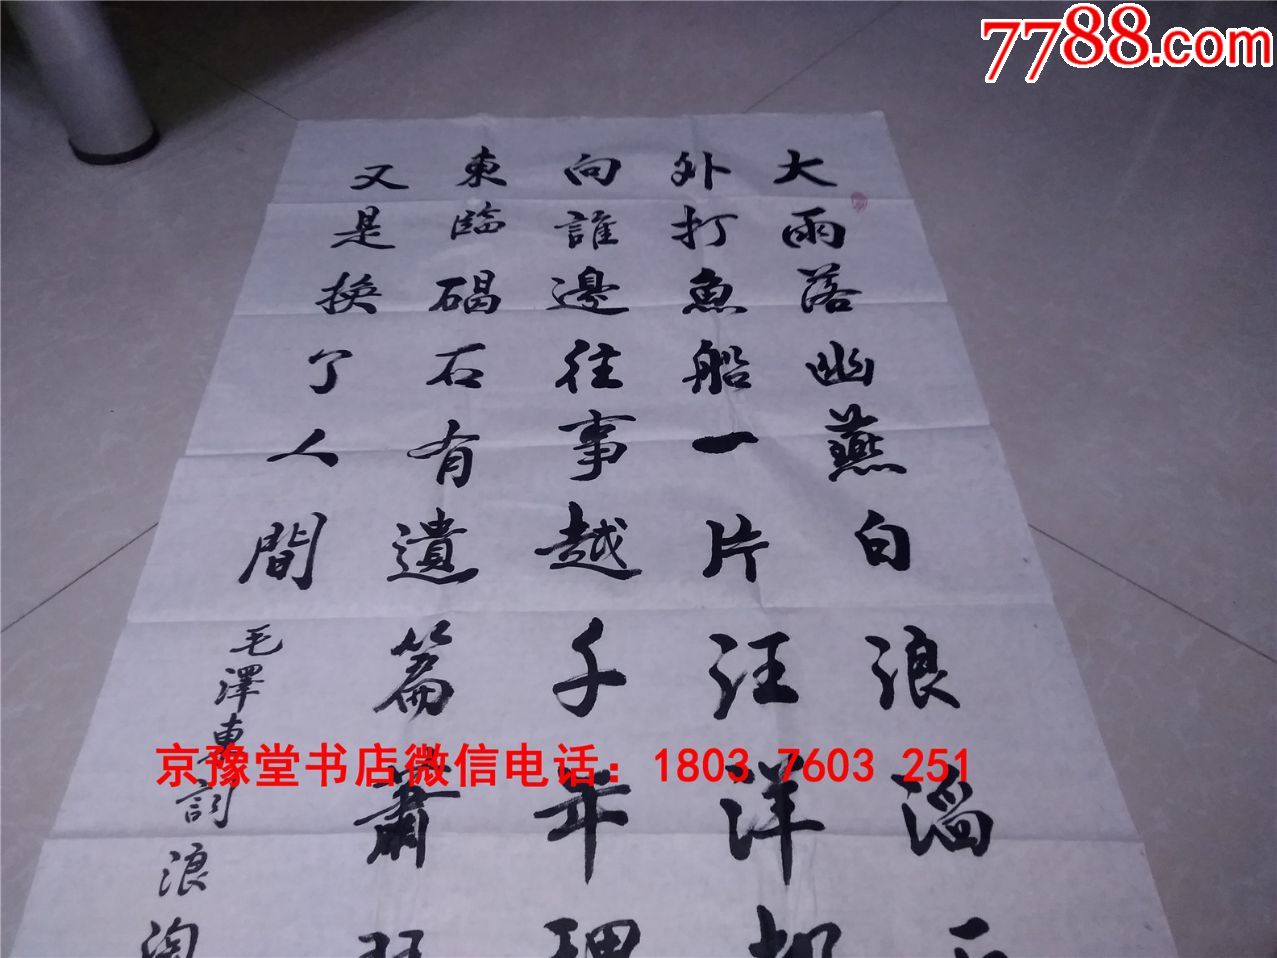 7788.com
大雨落幽燕白浪滔
外打魚船一片汪洋都
向誰邊往事越千年
東臨碣石有遺篇蕭
又是換了人間
毛澤東詞浪淘
京豫堂书店微信电话：1803 7603 251